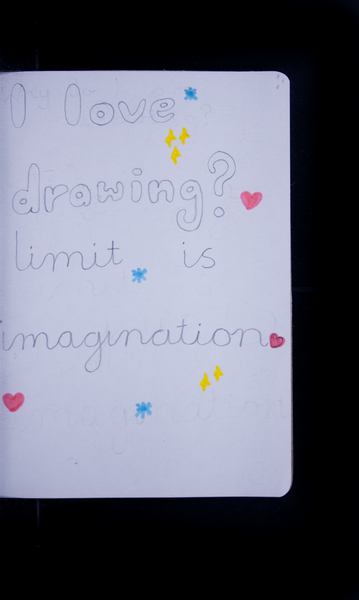 I love
drawing?
limit is
imagination